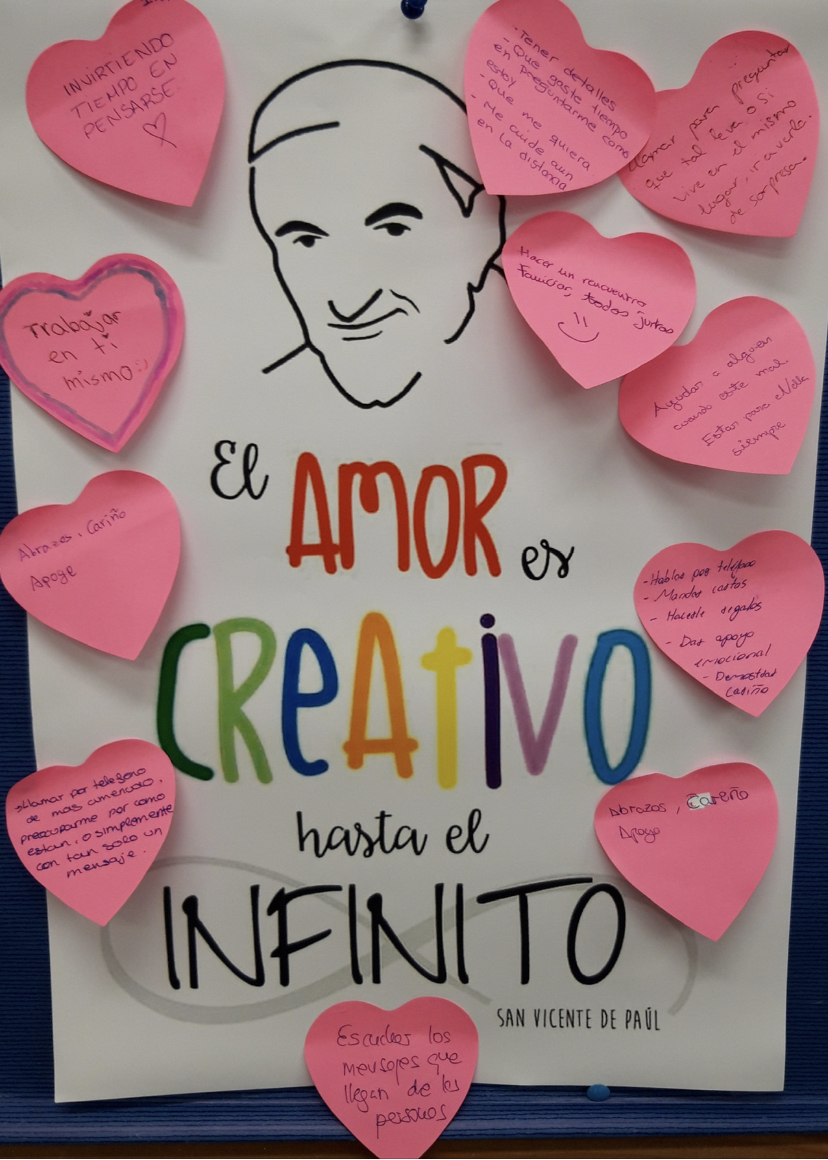 INVIRTIENDO
TIEMPO EN
PENSARSE.
- Tener detalles
- Que gaste tiempo
en preguntarme como
estoy
- Que me quiera
- Me cuide aun
en la distancia
llamar para preguntar
que tal le va o si
vive en el mismo
lugar, ir a verla.
de sorpresa.
Hacer un reencuentro
familiar, todos juntos
Trabajar
en ti
mismo
Ayudar a alguien
cuando este mal
Estar para el/ella
siempre
El AMOR es
CREATIVO
hasta el
INFINITO
SAN VICENTE DE PAÚL
Abrazos, Cariño
Apoyo
- Hablar por teléfono
- Mandar cartas
- Hacerle regalos
- Dar apoyo
emocional
- Demostrar
cariño
Llamar por telefono
de mas amenudo,
preocuparme por como
estan, o simplemente
con tan solo un
mensaje.
Abrazos, Careño
Apoyo
Escuchar los
mensajes que
llegan de las
personas